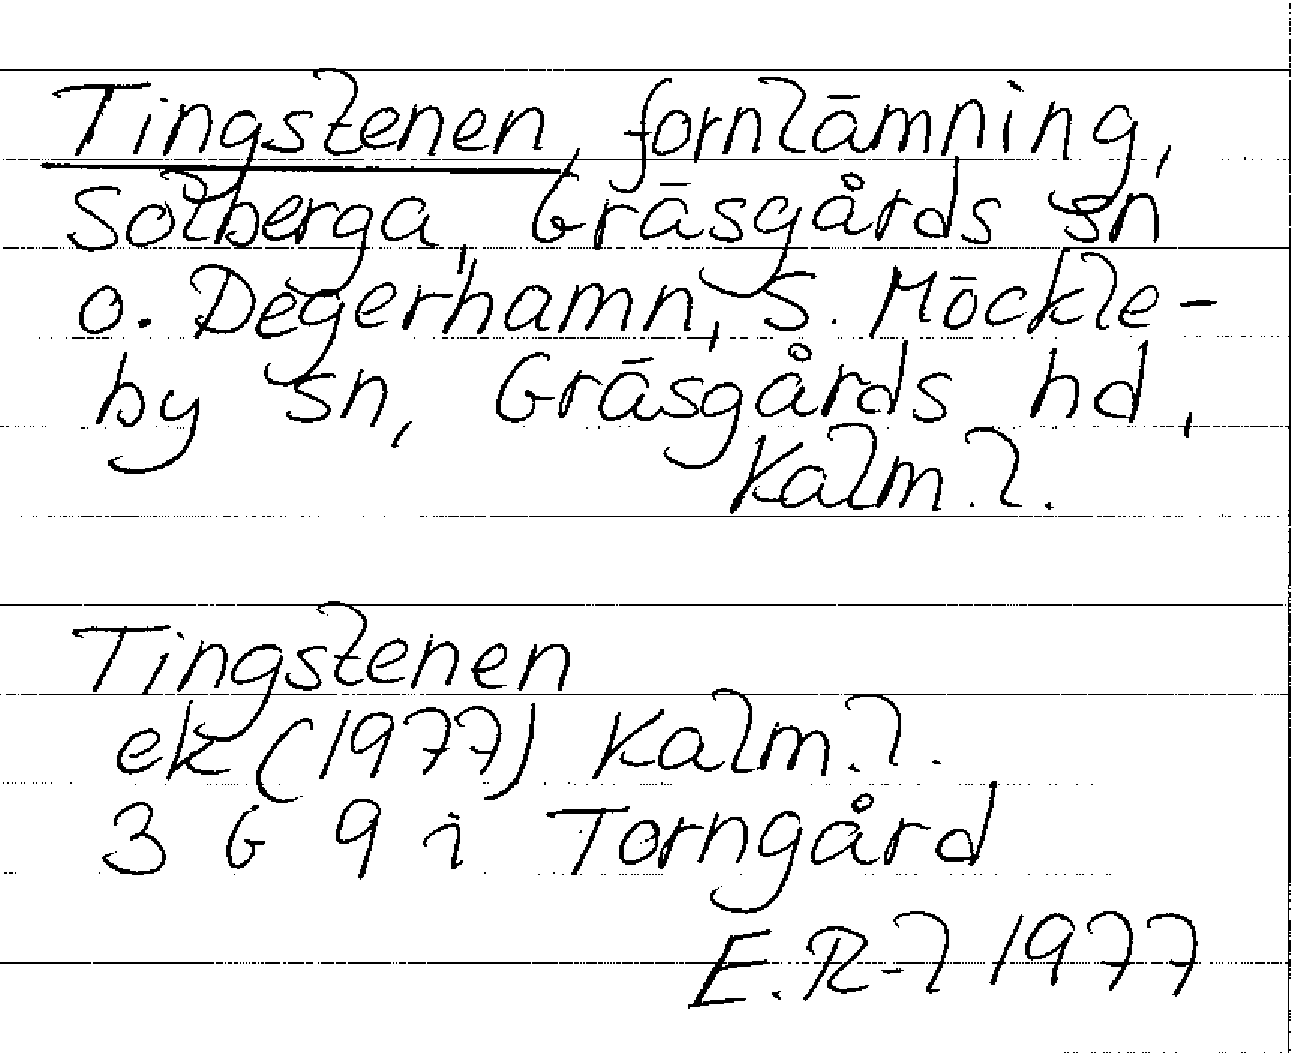 Tingstenen, fornlämning,
Solberga, Gräsgårds sn
o. Degerhamn, S. Möckle-
by sn, Gräsgårds hd,
Kalm. l.
Tingstenen
ek (1977) Kalm. l.
3 G 9 i Torngård
E. R-l 1977